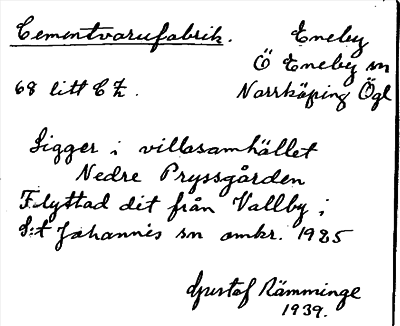 Cementvarufabrik. Eneby
Ö Eneby sn
68 litt C Z. Norrköping Ögl
Ligger i villasamhället
Nedre Pryssgården
Flyttad dit från Vallby i
S:t Johannis sn omkr. 1925
Gustaf Rämminge
1939.